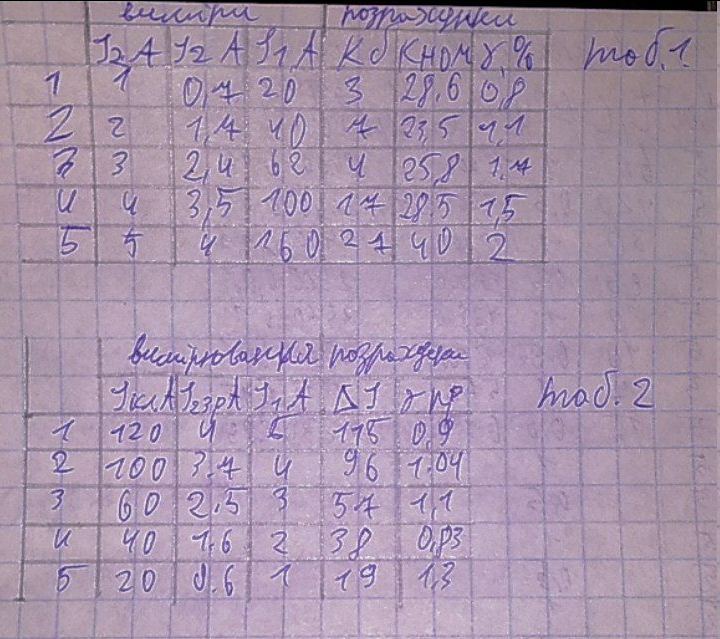 виміри розрахунки
I2 A I2 A I1 A Kd Кном γ,% таб.1.
1 1 0,7 20 3 28,6 0,8
2 2 1,7 40 7 23,5 1,1
3 3 2,4 62 4 25,8 1,7
4 4 3,5 100 17 28,5 1,5
5 5 4 160 27 40 2
вимірювання розрахунки
Iкл A I2зр A I1 A ΔI γ пр таб. 2
1 120 4 5 115 0,9
2 100 3.7 4 96 1.04
3 60 2.5 3 57 1,1
4 40 1,6 2 38 0,83
5 20 0.6 1 19 1,3